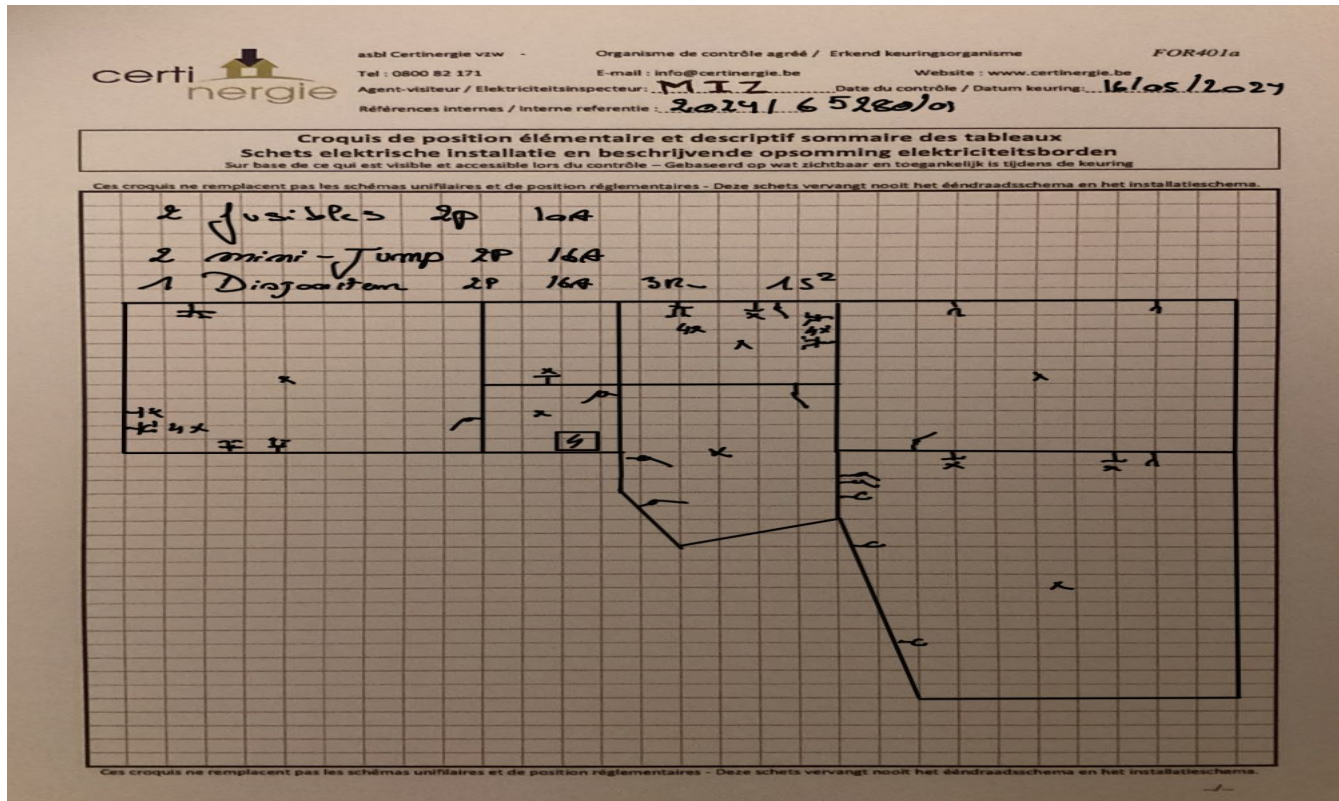 certi
nergie
asbl Certinergie vzw - Organisme de contrôle agréé / Erkend keuringsorganisme FOR401a
Tel : 0800 82 171 E-mail : info@certinergie.be Website : www.certinergie.be
Agent-visiteur / Elektriciteitsinspecteur: MIZ Date du contrôle / Datum keuring: 16/05/2024
Références internes / Interne referentie : 2024/65280/01
Croquis de position élémentaire et descriptif sommaire des tableaux
Schets elektrische installatie en beschrijvende opsomming elektriciteitsborden
Sur base de ce qui est visible et accessible lors du contrôle – Gebaseerd op wat zichtbaar en toegankelijk is tijdens de keuring
Ces croquis ne remplacent pas les schémas unifilaires et de position réglementaires - Deze schets vervangt nooit het ééndraadsschema en het installatieschema.
2 fusibles 2p 10A
2 mini-Jump 2P 16A
1 2P 16A
4x
4x
4x
Ces croquis ne remplacent pas les schémas unifilaires et de position réglementaires - Deze schets vervangt nooit het ééndraadsschema en het installatieschema.